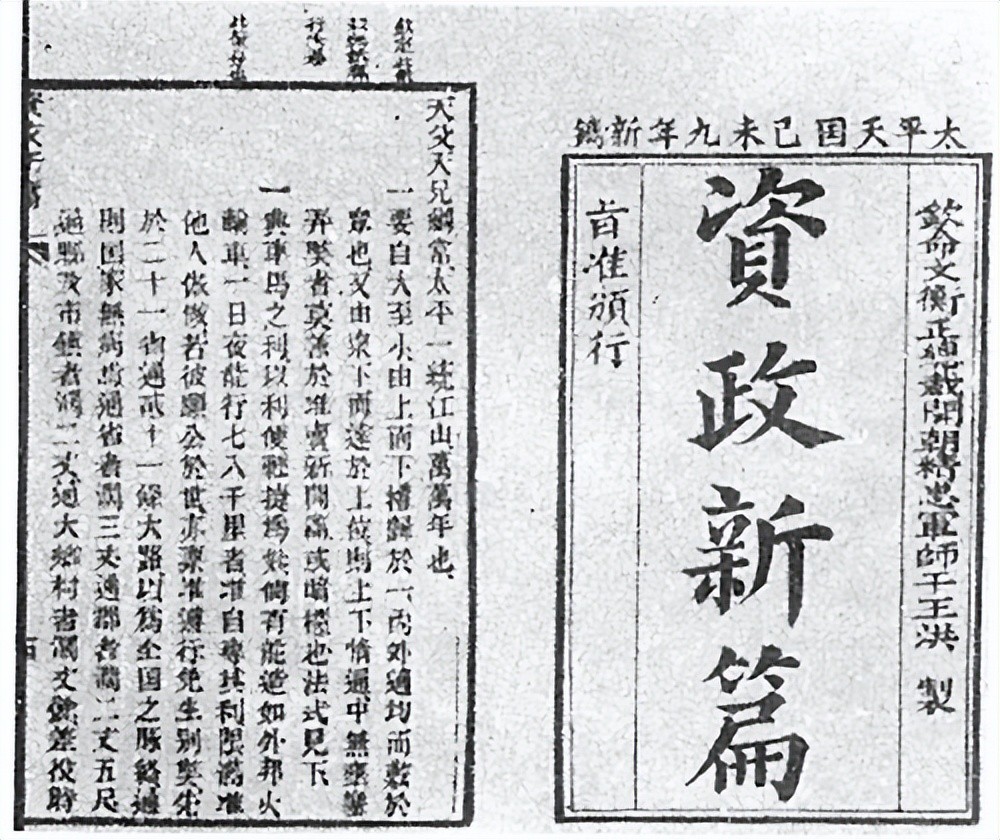 太平天囯己未九年新鐫
欽命文衡正總裁開朝精忠軍師干王洪 製
資政新篇
旨准頒行
天父天兄綱常太平一統江山萬萬年也
一要自大至小由上而下權歸於一內外適均而敷於
眾也又由眾下而達於上位則上下情通中無壅塞
弄弊者莫善於准賣新聞篇或暗櫃也法式見下
一興車馬之利以利便輕捷為妙倘有能造如外邦火
輪車一日夜能行七八千里者准自專其利限滿准
他人倣做若彼願公於世亦稟准遵行免生別弊先
於二十一省通貳十一條大路以為全囯之脉絡通
則囯家無病焉通省者濶三丈通郡者濶二丈五尺
通縣及市鎮者濶二丈通大鄉村者濶丈餘差役時